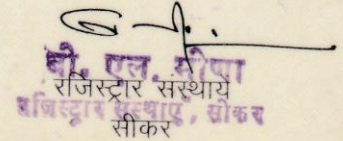 बी. एल. मीणा
रजिस्ट्रार संस्थायें
रजिस्ट्रार संस्थाएं, सीकर
सीकर